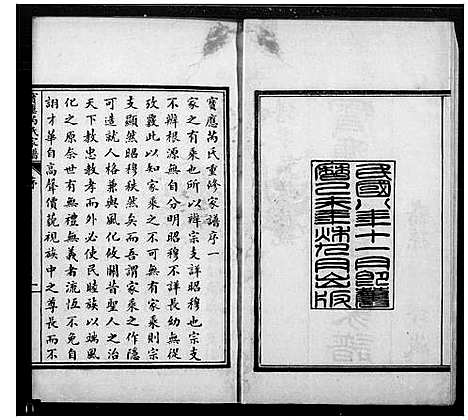 民國八年十一月
曆己未年秋九月出版
寶應芮氏重修家譜序一
家之有乘也所以辨宗支詳昭穆也宗支
不辦根源無自分明昭穆不詳長幼無從
攷覈此以知家乘之不可無也家乘則宗
支顯然昭穆秩然矣而吾謂家乘之作隱
可造就人格兼與風化攸關昔聖人之治
天下教忠教孝而外必使民睦族以端風
化之原奈世有無志義者流恆不免自
詡才華自高聲價藐視族中之尊長而不
序
一